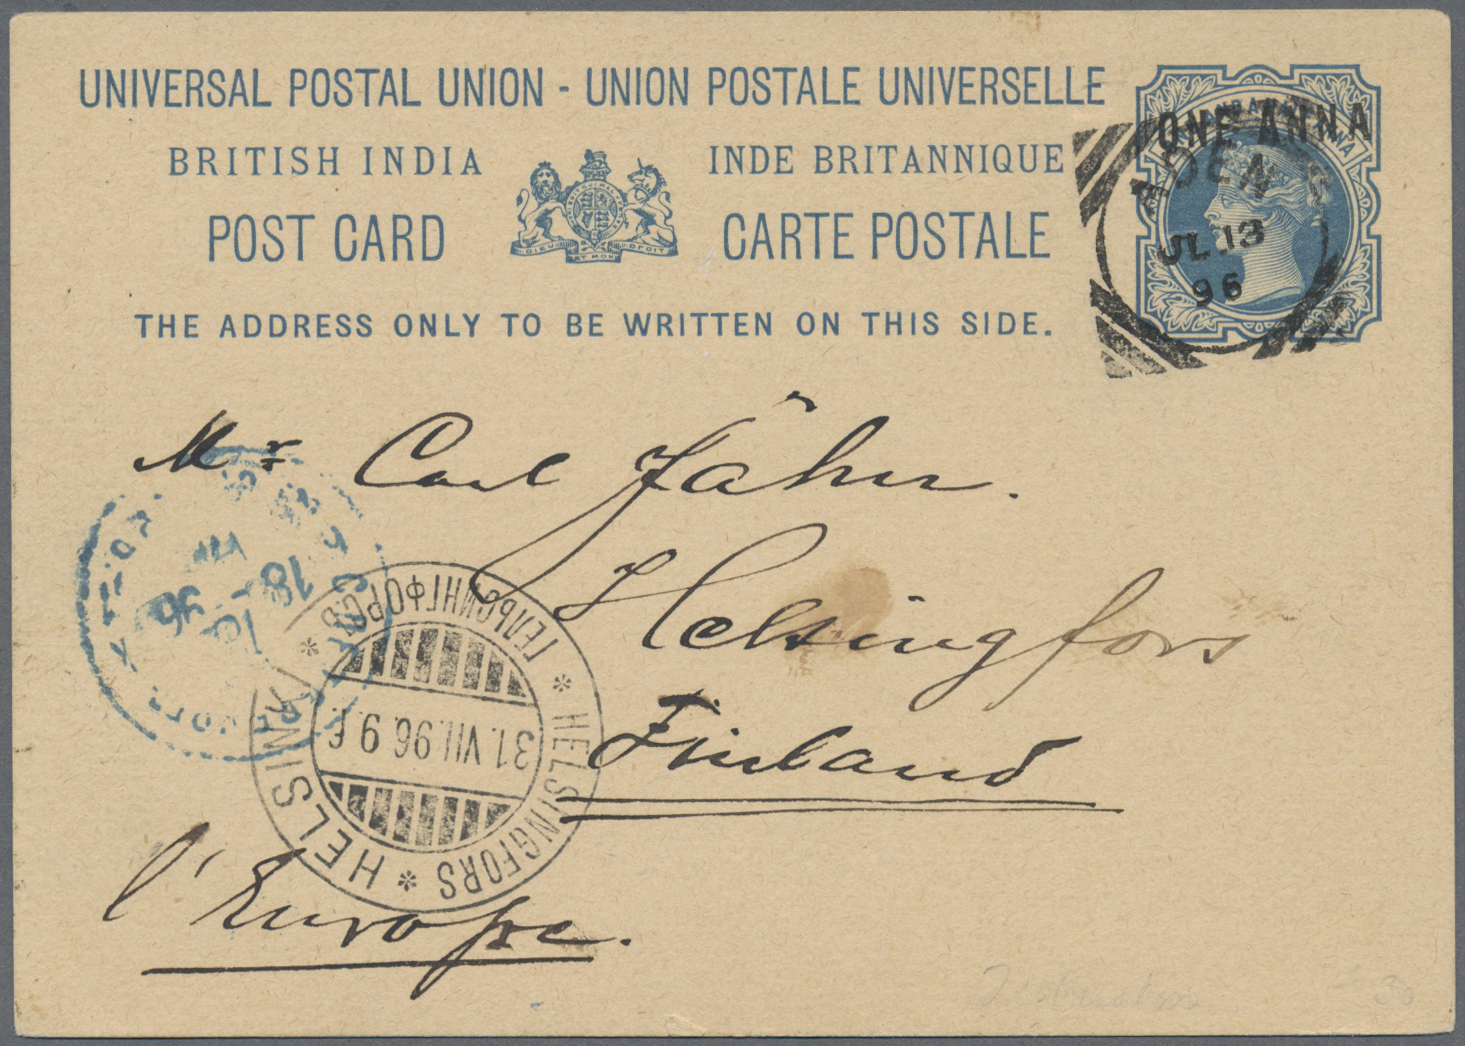 UNIVERSAL POSTAL UNION - UNION POSTALE UNIVERSELLE
BRITISH INDIA
INDE BRITANNIQUE
POST CARD
CARTE POSTALE
DIEU ET MON DROIT
THE ADDRESS ONLY TO BE WRITTEN ON THIS SIDE.
ONE ANNA
ADEN
JL 13
96
Mr Carl Jähn.
Helsingfors
Finland
l'Europe.
18
96
ГЕЛЬСИНГФОРСЪ
* HELSINGFORS * HELSINKI *
31.VII.96. 9